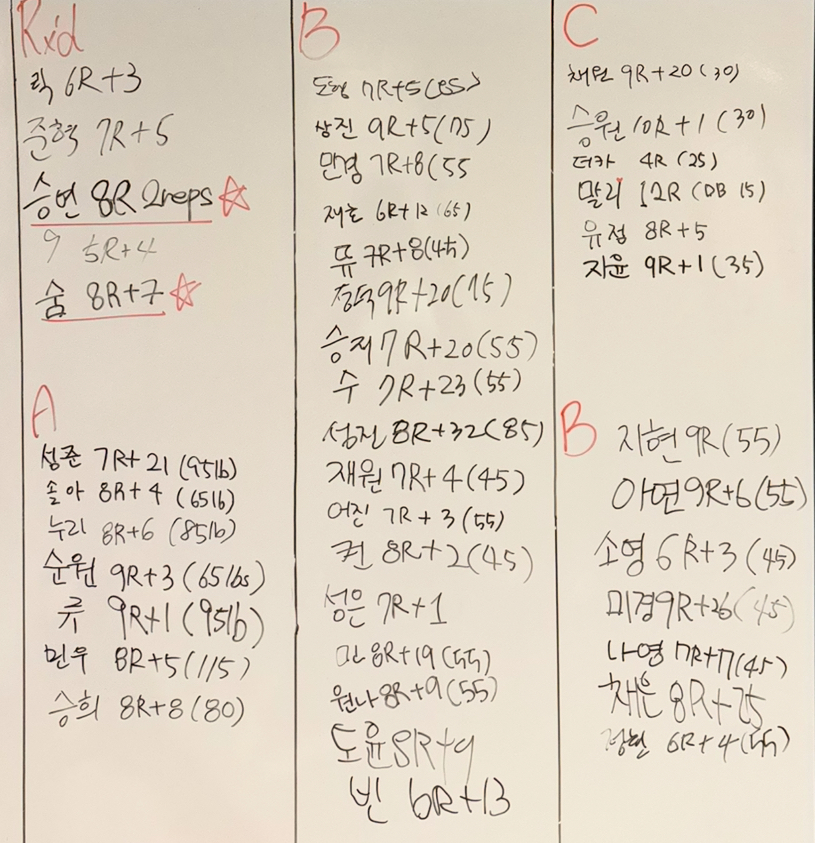 Rx'd
락 6R+3
준혁 7R+5
승변 8R 2reps
9 5R+4
숨 8R+7
A
성준 7R+21 (95lb)
솔아 8R+4 (65lb)
누리 8R+6 (85lb)
순원 9R+3 (65lbs)
류 9R+1 (95lb)
민우 8R+5 (115)
승희 8R+8 (80)
B
도형 7R+5 (85)
상진 9R+5 (75)
만경 7R+8 (55
재호 6R+12 (65)
뜌 7R+8 (45)
9R+20 (75)
승지 7R+20 (55)
수 7R+23 (55)
성진 8R+32 (85)
재원 7R+4 (45)
어진 7R+3 (55)
퀸 8R+2 (45)
성은 7R+1
8R+19 (55)
원나 8R+9 (55)
도윤 8R+9
빈 6R+13
C
채원 9R+20 (30)
승원 10R+1 (30)
더카 4R (25)
말리 12R (DB 15)
유정 8R+5
지윤 9R+1 (35)
B
지현 9R (55)
아연 9R+6 (55)
소영 6R+3 (45)
미경 9R+26 (45)
나영 7R+7 (45)
채은 8R+25
정현 6R+4 (55)